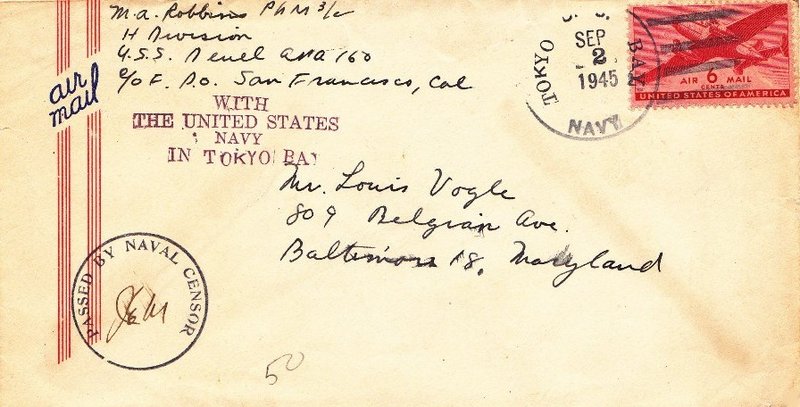 M.A. Robbins PhM 3/c
H Division
U.S.S. Deuel APA 160
c/o F. P.O. San Francisco, Cal
air
mail
WITH
THE UNITED STATES
NAVY
IN TOKYO BAY
TOKYO BAY
SEP
2
1945
NAVY
AIR 6 MAIL
CENTS
UNITED STATES OF AMERICA
Mr. Louis Vogle
809 Belgian Ave.
Baltimore 18, Maryland
PASSED BY NAVAL CENSOR
50